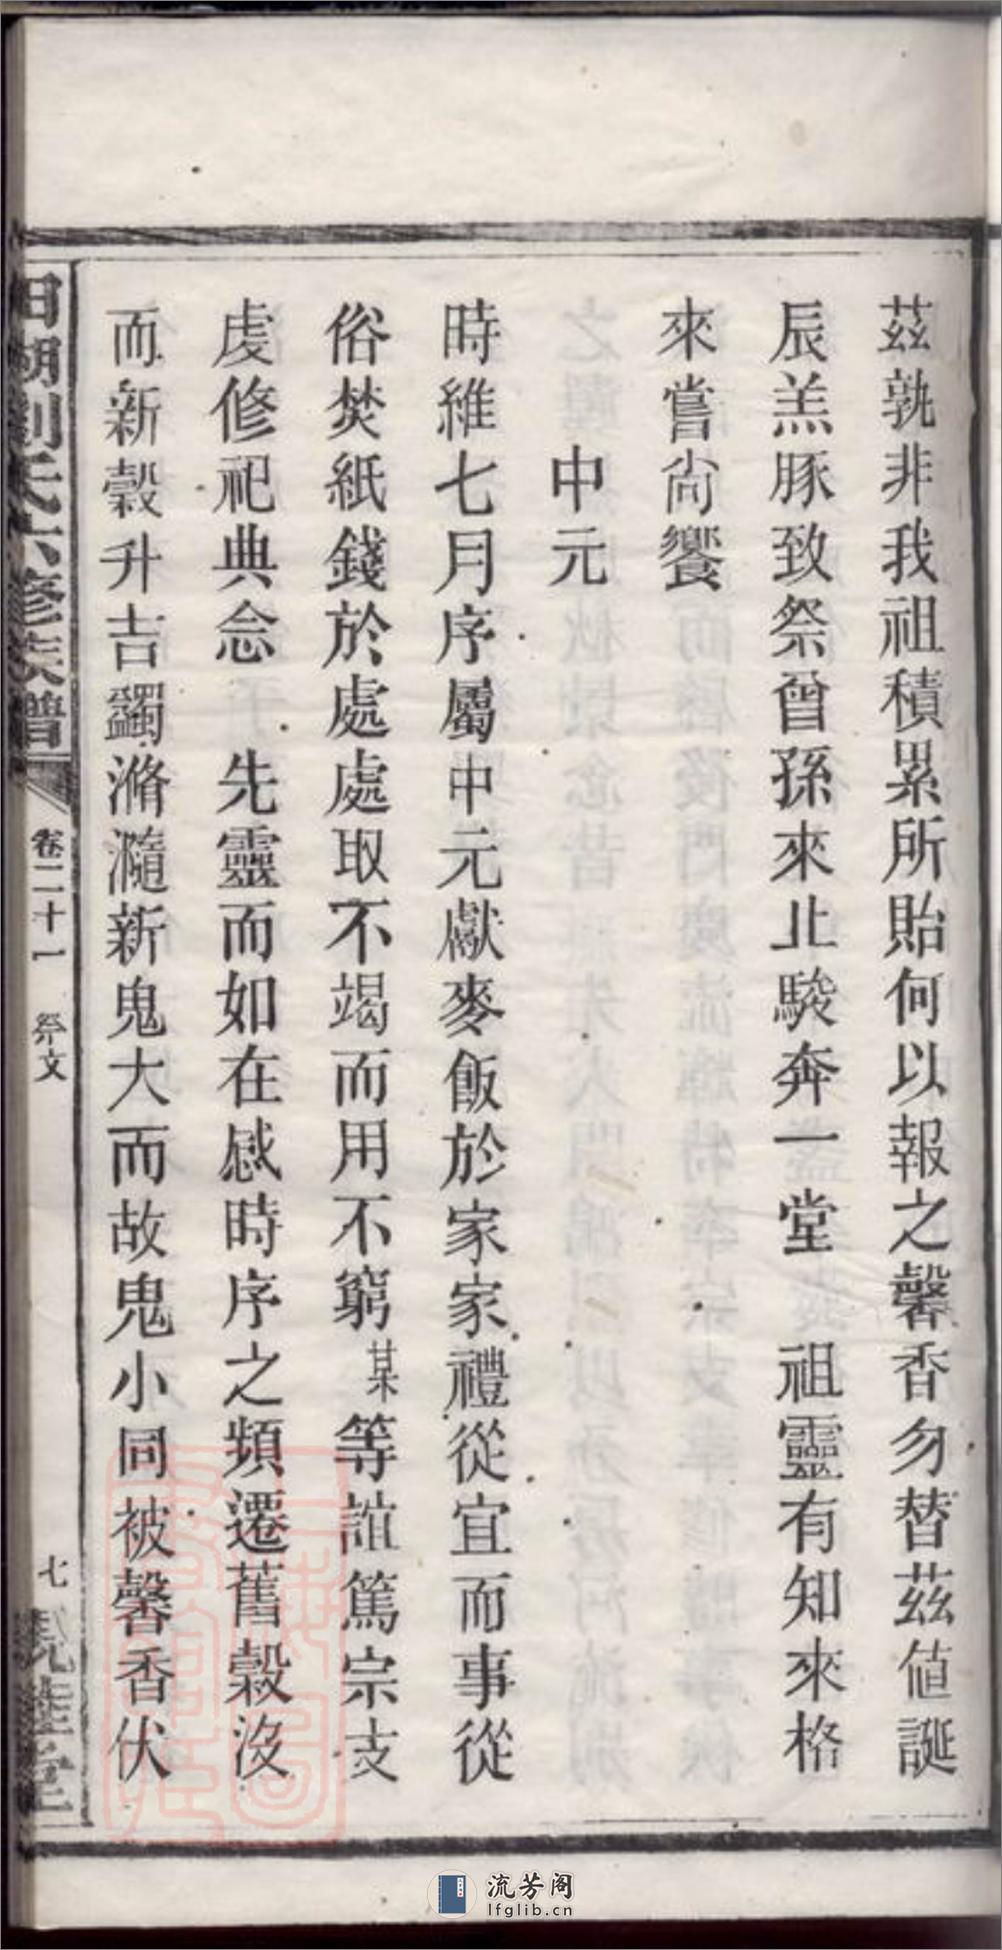 茲孰非我祖積累所貽何以報之馨香勿替茲値誕
辰羔豚致祭曾孫來止駿奔一堂　祖靈有知來格
來嘗尙饗
中元
時維七月序屬中元獻麥飯於家家禮從宜而事從
俗焚紙錢於處處取不竭而用不窮某等誼篤宗支
虔修祀典念　先靈而如在感時序之頻遷舊穀沒
而新穀升吉蠲滫瀡新鬼大而故鬼小同被馨香伏
湖劉氏六修族譜
卷二十一
祭文
七
堂
流芳阁
lfglib.cn